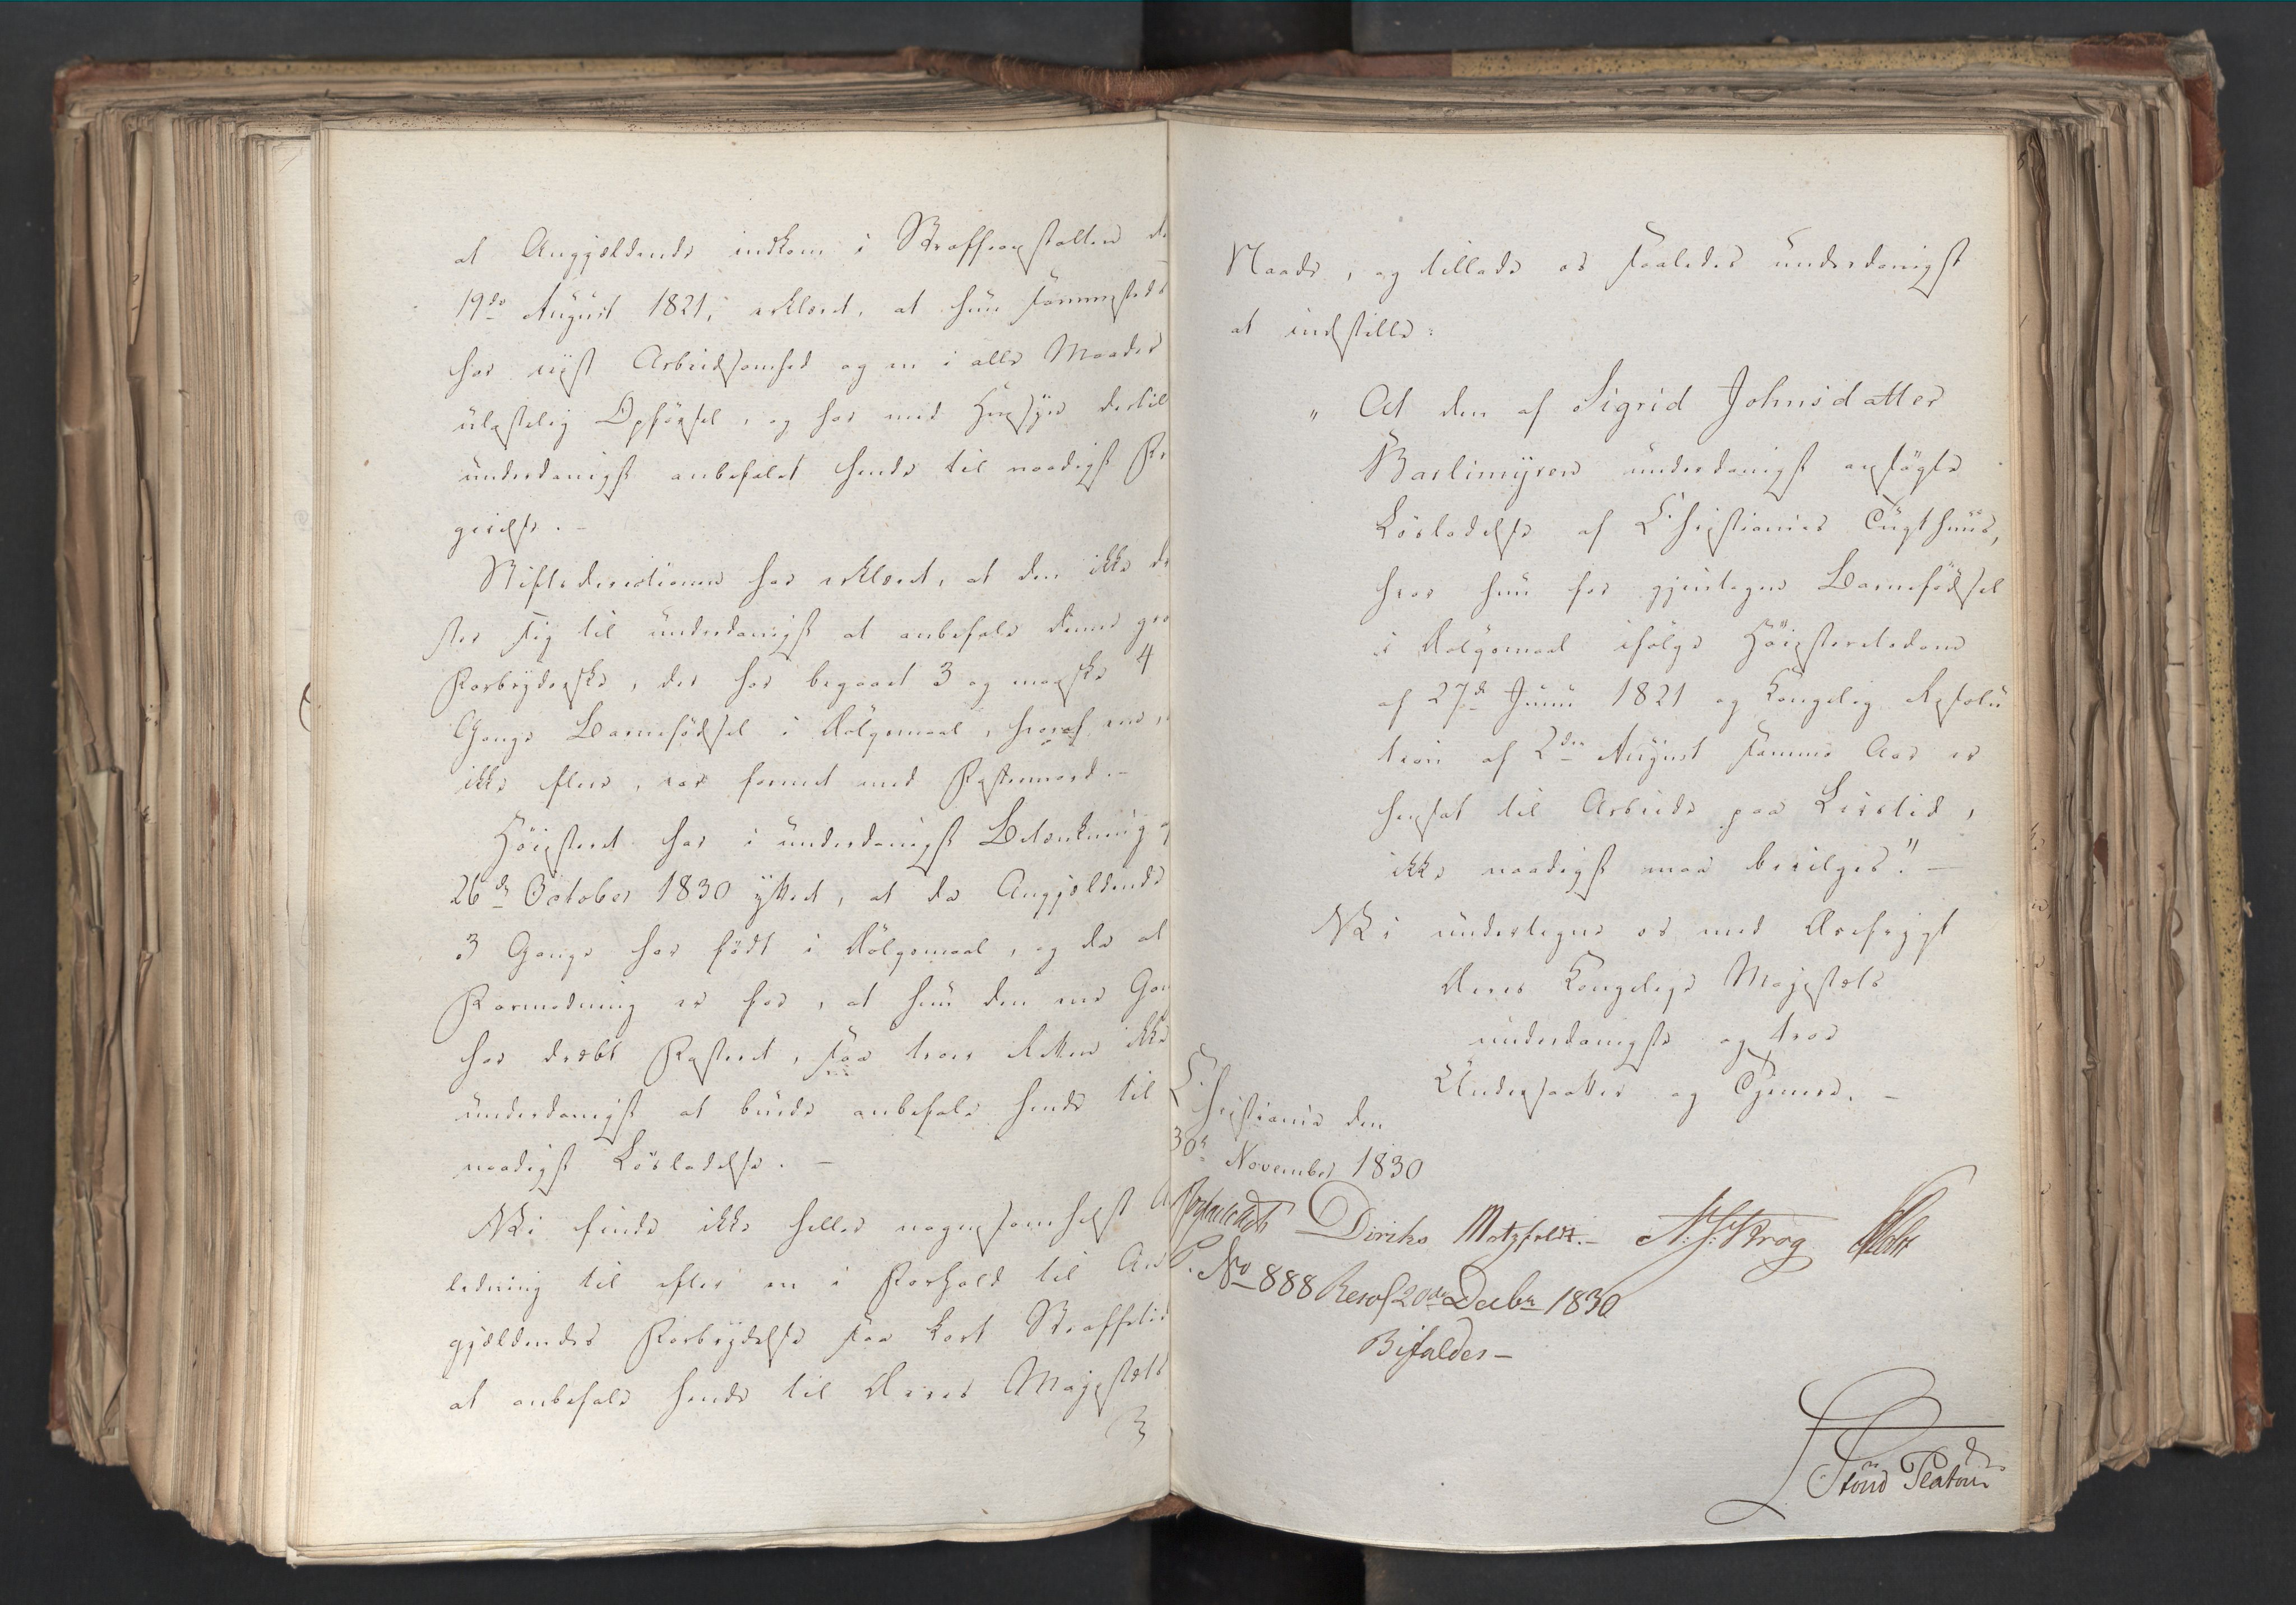 at Angjeldende indkom i Straffeanstalten d
19de August 1821, erklæret, at hun sammesteds
har viist Arbeidsomhed og en i alle Maader
ulastelig Opførsel, og har med Hensyn dertil
underdanigst anbefalet hende til naadigst Be
givelse. –
Stiftsdirectionen har erklæret, at den ikke dr
ster sig til underdanigst at anbefale denne gro
Forbryderske, der har begaaet 3 og maaske 4
Gange Barnefødsel i Dølgsmaal, hvoraf een,
ikke flere, var forenet med Fostermord. –
Høiesteret har i underdanigst Betænkning a
26de October 1830 yttret, at da Angjeldende
3 Gange har født i Dølgsmaal, og da al
Formodning er for, at hun den ene Gan
har dræbt Fosteret, saa troer Retten ikke
underdanigst at burde anbefale hende til
naadigst Løsladelse. –
Vi finde ikke heller nogensomhelst A
ledning til efter en i Forhold til An
gjeldendes Forbrydelse saa kort Straffetid
at anbefale hende til Deres Majestæts
Naade, og tillade os saaledes underdanigst
at indstille:
" At den af Sigrid Johnsdatter
Barlimyren underdanigst ansøgte
Løsladelse af Christianias Tugthuus,
hvor hun for gjentagen Barnefødsel
i Dølgsmaal ifølge Høiesteretsdom
af 27de Juni 1821 og Kongelig Resolu
tion af 2den August samme Aar er
hensat til Arbeide paa Livstid,
ikke naadigst maa bevilges." –
Vi undertegne os med Ærefrygt
Deres Kongelige Majestæts
underdanigste og troe
Undersaatter og Tjenere. –
Christiania den
30te November 1830
Diriks Motzfeldt. – N. J. Krog
P. No 888 Resol 20de Decbr 1830
Bifaldes –